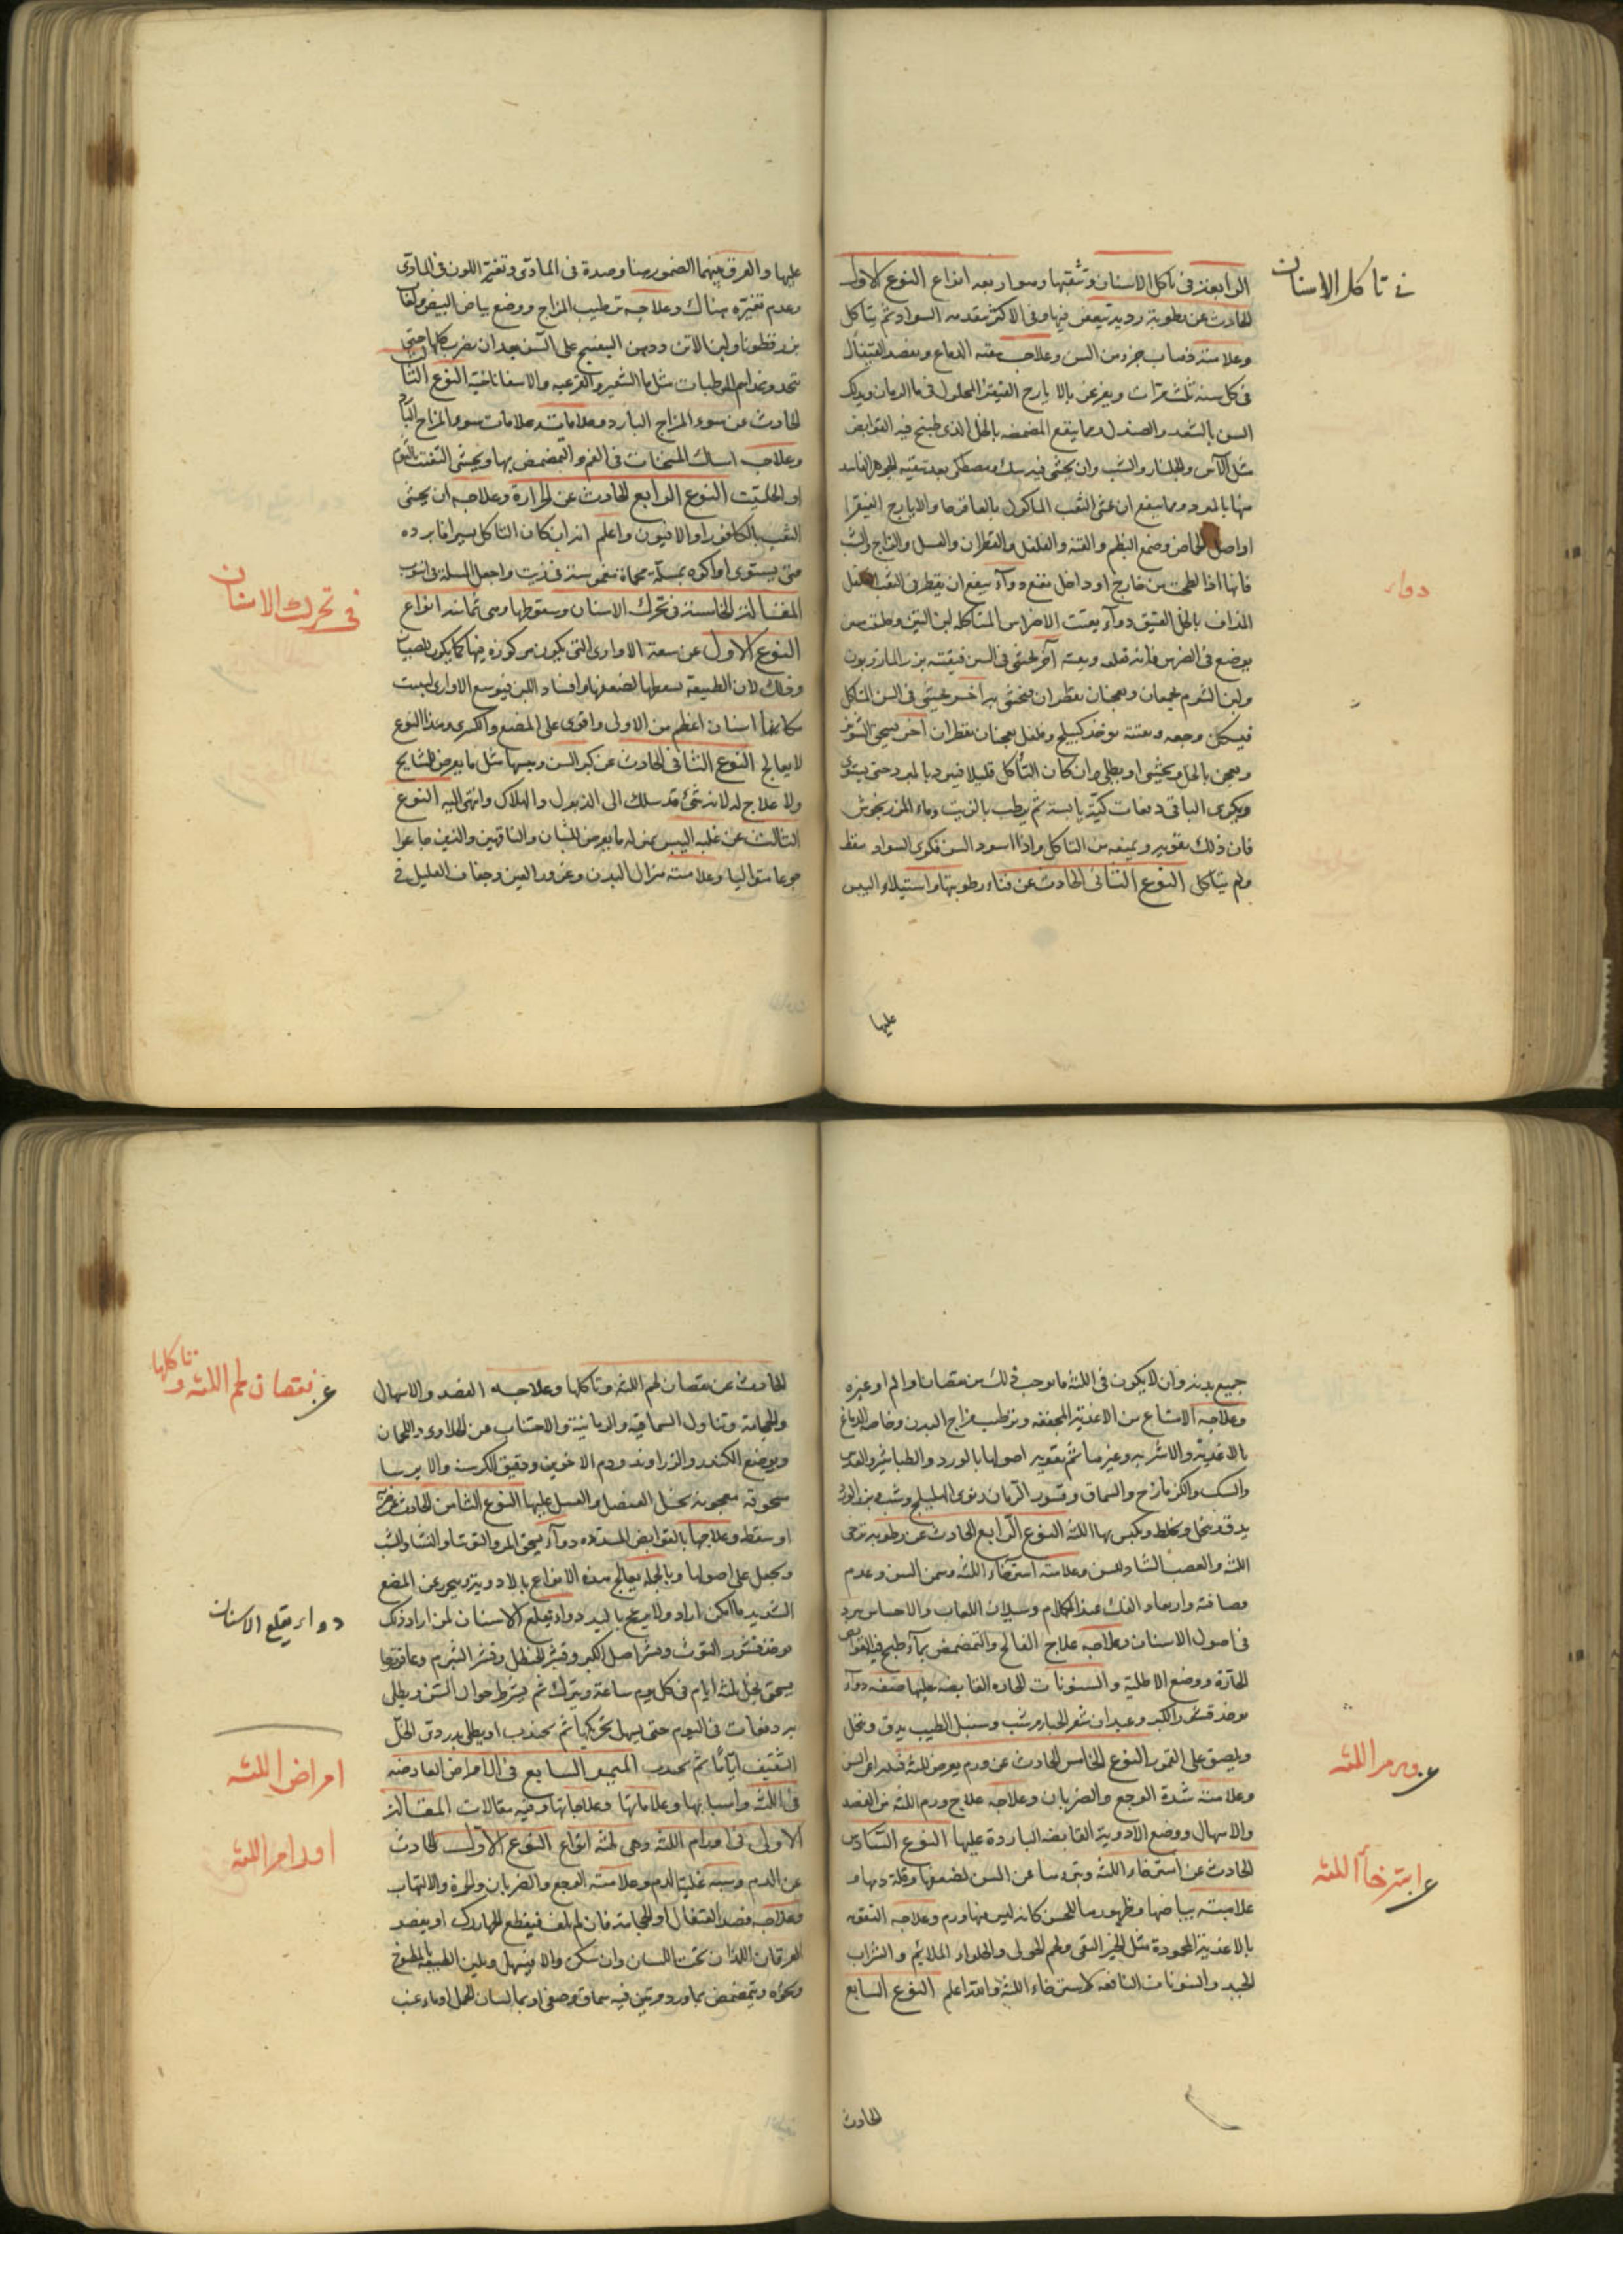 في تاكل الاسنان
الرابعة في تاكل الاسنان وتثقبها وهو اربعه انواع النوع الاول
الحادث عن رطوبة ردية تتعفن فيها وفي الاكثر يتقدمه السواد ثم يتاكل
وعلامته ذهاب جزء من السن وعلاجه تنقيه الدماغ وبفصد القيفال
في كل سنه ثلث مرات ويغرغر بالايارج الفيقرا المحلول في ماء الرمان ويدلك
السن بالسعد والصندل ومما ينفع المضمضه بالخل الذي طبخ فيه القوابض
مثل الآس والجلنار والشب وان يحشى فيه سك ومصطكى بعد تنقيه الجوهر الفاسد
منها بالمبرد ومما ينفع ان يحشى الثقب الماكول بالعاقرقرحا والايارج الفيقرا
او اصل الحماض وصمغ البطم والقنة والفلفل والقطران والعسل والزاج والشب
فانها اذا لطخت من خارج او داخل نفع دوآء ينفع ان يقطر في الثقب
دواء
المذاف بالخل العتيق دوآء يفتت الاضراس المتاكله لبن التين
يوضع في الضرس فانه قلعه ويفته آخر يحشى في السن فيفتته بزر المازريون
ولبن الشبرم يجمعان ويعجنان بقطران فيحشى به آخر يحشى في السن المتاكل
فيسكن وجعه ويفتته يوخذ كبيكج وفلفل يعجنان بقطران آخر يسحق الشونيز
ويعجن بالخل ويحشى او يطلى وان كان التاكل قليلا فيبرد بالمبرد حتى يستوى
ويكوى الباقي دفعات كيّة يابسة ثم يطب بالزيت وماء المرزنجوش
فان ذلك يقويه ويمنعه من التاكل واذا اسود السن فكوى السواد سقط
ولم يتاكل النوع الثاني الحادث عن فناء رطوبتها واستيلاء اليبس
عليها
عليها والفرق بينهما الضمور هنا وضده في المادي وتغيّر اللون في المادي
وعدم تغيّره هناك وعلاجه ترطيب المزاج ووضع بياض البيض ولعاب
بزرقطونا ولبن الاتن ودهن البنفسج على السن بعد ان يضرب كلها حتى
تتحد وتداوم المرطبات مثل ماء الشعير والقرعيه والاسفاناخية النوع الثالث
الحادث عن سوء المزاج البارد وعلاماته علامات سوء المزاج البارد
وعلاجه امساك المسخنات في الفم والتمضمض بها ويحشى الثقب بالثوم
او الحلتيت النوع الرابع الحادث عن الحرارة وعلاجه ان يحشى
الثقب بالكافور او الافيون واعلم انه ان كان التاكل يسيرا فابرده
حتى يستوى او اكوه بمسلة محماة تغموسة في زيت واجعل المسلة في انبوب
في تحرك الاسنان
المقالة الخامسة في تحرك الاسنان وسقوطها وهى ثمانية انواع
النوع الاول عن سعة الاوارى التي تكون مركوزة فيها كما يكون للصبيان
وذلك لان الطبيعة تسقطها لضعفها وافساد اللبن فيوسع الاوارى لينبت
مكانها اسنان اعظم من الاولى واقوى على المضغ والكسر وهذا النوع
لا يعالج النوع الثاني الحادث عن كبر السن ويبسها مثل ما يعرض للمشايخ
ولا علاج له لانه شئ قد سلك الى الذبول والهلاك وانتهى اليه النوع
الثالث عن غلبه اليبس بمنزله ما يعرض للشبان والناقهين والذين جاعوا
جوعا متواليا وعلامته هزال البدن وغور العين وجفاف العليل في
جميع بدنه وان لا يكون في اللثة ما يوجب ذلك من نقصان او الم او غيره
وعلاجه الامتناع من الاغذية المجففه وترطيب مزاج البدن وخاصة الدماغ
بالاغذيه والاشربه وغيرهما ثم تقويه اصولها بالورد والطباشير والعدس
والسك والكزمازج والسماق وقشور الرمان ونوى الهليلج وشب وبزر الورد
يدق وينخل ويخلط ويكبس بها اللثه النوع الرابع الحادث عن رطوبه ترخى
اللثه والعصب الشاد للسن وعلامته استرخاء اللثه وسمن السن وعدم
وسيلان اللعاب والاحساس ببرد
في اصول الاسنان وعلاجه علاج الفالج والتمضمض بمآء طبخ فيه القوابض
الحارّة ووضع الاطلية والسنونات الحاره القابضه عليها صفه دوآء
يوخذ قشر الكبر وعيدان شعر الجبار وشب وسنبل الطيب يدق وينخل
ويلصق على العمور النوع الخامس الحادث عن ورم يعرض للثة
عن ورم اللثه
وعلامته شدة الوجع والضربان وعلاجه علاج ورم اللثه من الفصد
والاسهال ووضع الادوية القابضه الباردة عليها النوع السادس
الحادث عن استرخاء اللثه وتبريها عن السن لضعفها وقلة دمها و
عن استرخاء اللثه
علامته بياضها وظهورها للحسن كانه ليس فيها ورم وعلاجه التقويه
بالاغذية المحمودة مثل الخبز النقي ولحم الحولى والحلواء الملائم والشراب
الجيد والسنونات النافعه لاسترخاء اللثة والله اعلم النوع السابع
الحادث
الحادث عن نقصان لحم اللثه وتاكلها وعلاجه الفصد والاسهال
عن نقصان لحم اللثه وتاكلها
والحجامة وتناول السماقيه والرمانية والاجتناب من الحلاوى واللحمان
ويوضع الكندر والزراوند ودم الاخوين ودقيق الكرسنه والايرسا
مسحوقه معجونه بخل العنصل والعسل عليها النوع الثامن الحادث عن ضربة
او سقطه وعلاجها بالقوابض المسدده دوآء يسحق المر والقوتنا والنشا والشب
ويجعل على اصولها وبالجمله يعالج هذه الانواع بالادوية ويحترز عن المضغ
الشديد ما امكن اراد ولا يمسح باليد دواء يقلع الاسنان لمن اراد ذلك
دواء يقلع الاسنان
يوخذ قشور التوث وقشر اصل الكبر وقشر الحنظل وقشر الشبرم وعاقرقرحا
يسحق بخل ثلثة ايام في كل يوم ساعة ويترك ثم يشرط حوالى السن ويطلى
به دفعات في اليوم حتى يسهل تحريكها ثم يجذب او يطلى بدردى الخلّ
الثقيف ايّاما ثم يجذب المبحث السابع في الامراض العارضه
امراض اللثه
في اللثه واسبابها وعلاماتها وعلاجاتها وفيه مقالات المقالة
الاولى في اورام اللثه وهى ثلثة انواع النوع الاول الحادث
اورام اللثه
عن الدم وسببه غلبة الدم وعلامته الوجع والضربان والحمرة والالتهاب
وعلاجه فصد القيفال او الحجامة فان لم يكف فيقطع الجهارك او يفصد
العرقان اللذان تحت اللسان وان سكن والا فيسهل ويلين الطبيعة بالمطبوخ
ونحوه ويتمضمض بماورد مرتين فيه سماق وحصى او بماء لسان الحمل او ماء عنب